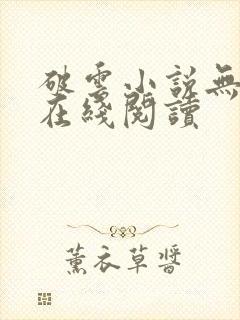 破雲小説無
在綫閲讀
薰衣草醬